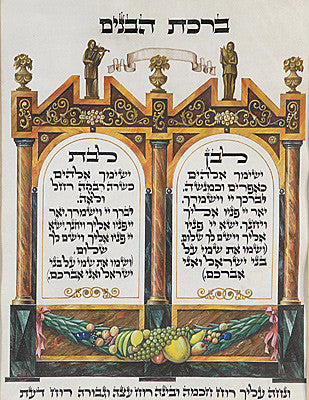 ברכת הבנים
לבן
ישימך אלהים,
כאפרים וכמנשה.
יברכך יי וישמרך,
יאר יי פניו אליך
ויחנך, ישא יי פניו
אליך וישם לך שלום
(ושמו את שמי על
בני ישראל ואני
אברכם.)
לבת
ישימך אלהים,
כשרה רבקה רחל
ולאה.
יברכך יי וישמרך, יאר
יי פניו אליך ויחנך, ישא
יי פניו אליך וישם לך
שלום,
(ושמו את שמי על בני
ישראל ואני אברכם.)
ונחה עליך רוח חכמה ובינה רוח עצה וגבורה רוח דעת